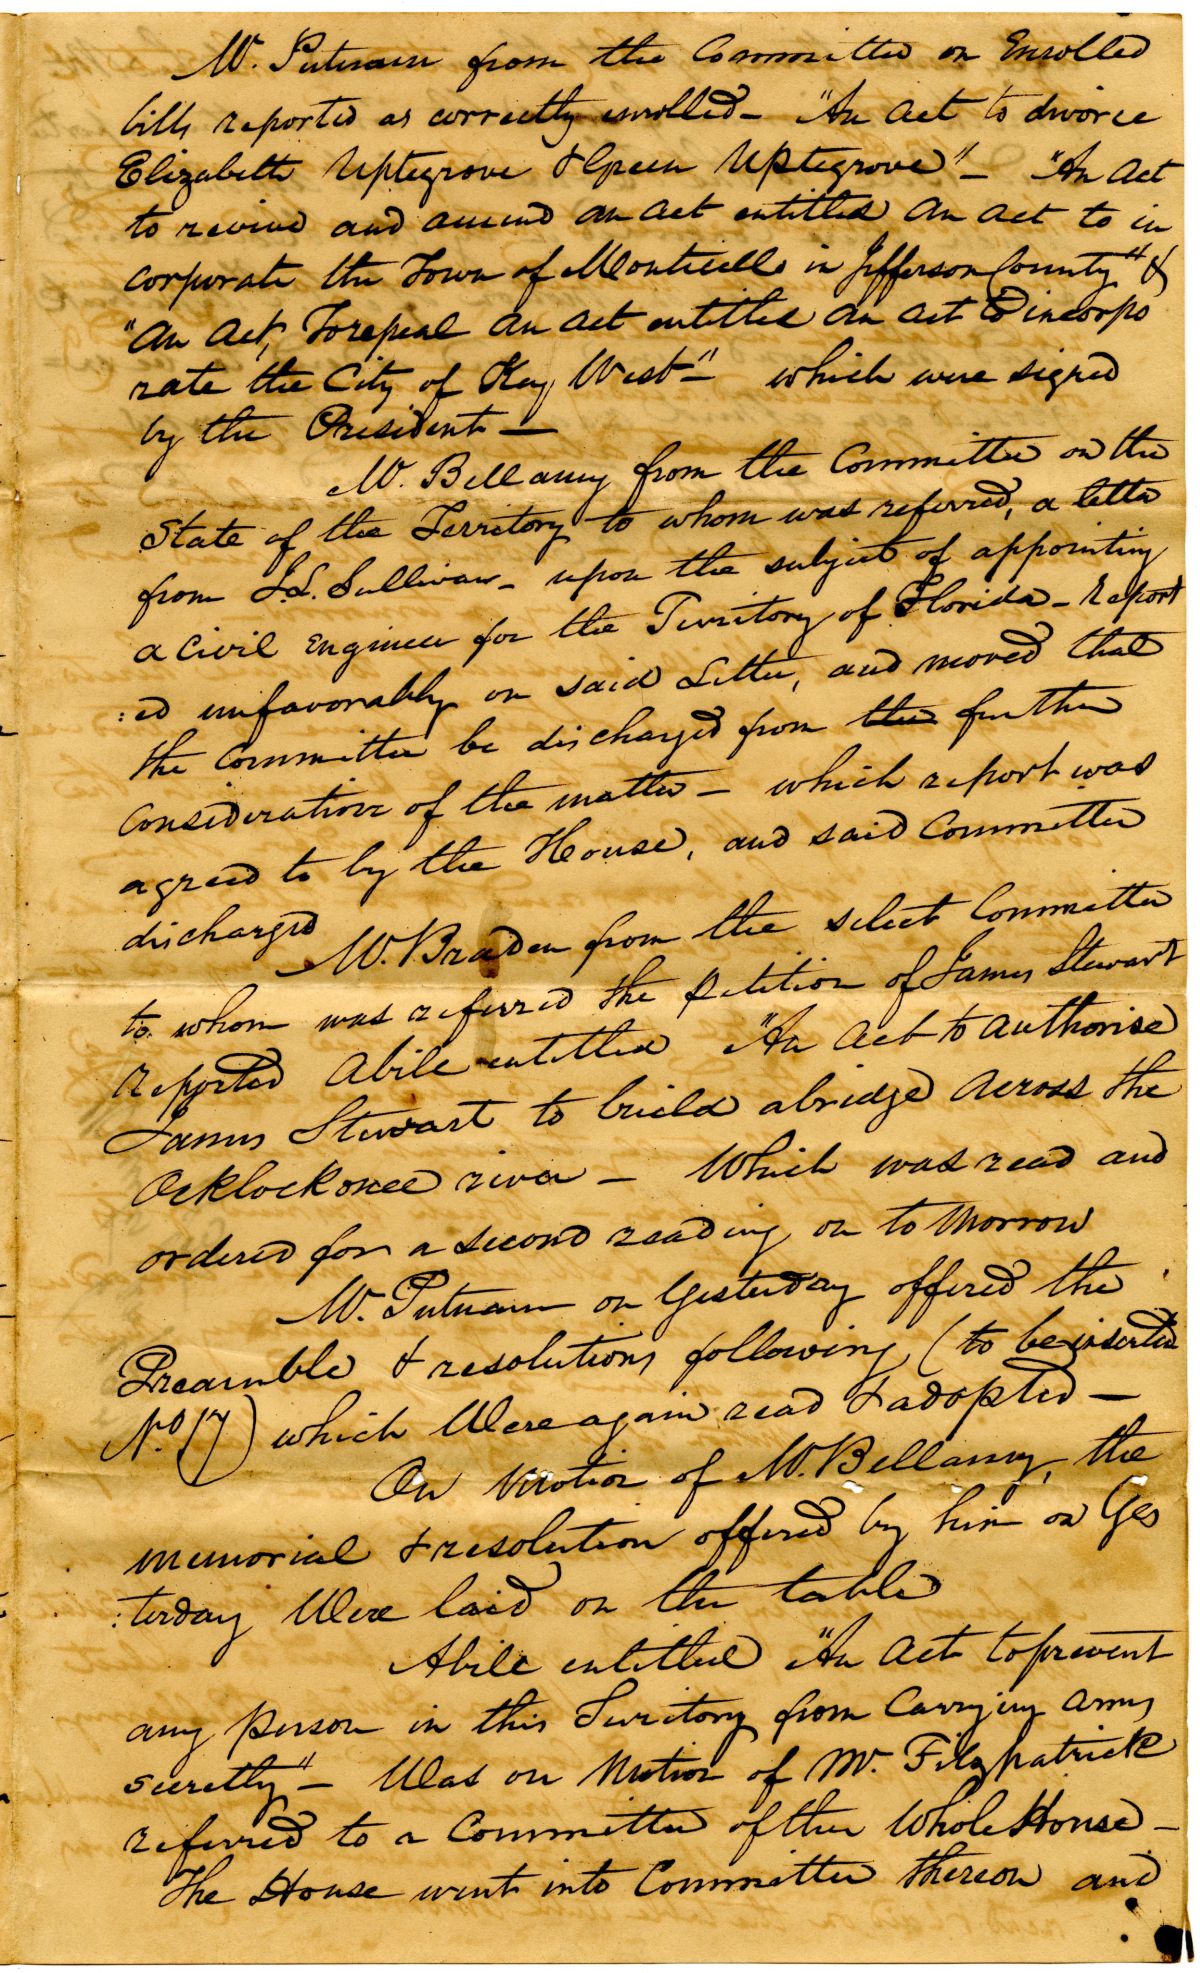 Mr. Putnam from the Committee on Enrolled
bills reported as correctly enrolled – "An Act to divorce
Elizabeth Uptegrove & Green Uptegrove" – "An Act
to revive and amend an act entitled An Act to in
corporate the Town of Monticello in Jefferson County" &
"An Act, To repeal an act entitled an act to incorpo
rate the City of Key West" – which were signed
by the President –
Mr. Bellamy from the Committee on the
State of the Territory to whom was referred, a letter
from J. L. Sullivan – upon the subject of appointing
a Civil Engineer for the Territory of Florida – report
:ed unfavorably on said Letter, and moved that
the Committee be discharged from the further
Consideration of the matter – which report was
agreed to by the House, and said Committee
discharged
Mr. Braden from the select Committee
to whom was referred the petition of James Stewart
reported a bill entitled "An Act to authorise
James Stewart to build a bridge across the
Ocklockonee river – Which was read and
ordered for a second reading on to morrow
Mr. Putnam on Yesterday offered the
Preamble & resolutions following, (to be inserted
No 17) which Were again read & adopted –
On Motion of Mr. Bellamy, the
memorial & resolution offered by him on Yes
:terday Were laid on the table
A bill entitled "An Act to prevent
any person in this Territory from Carrying Arms
secretly" – Was on Motion of Mr. Fitzpatrick
referred to a Committee of the Whole House –
The House went into Committee thereon and